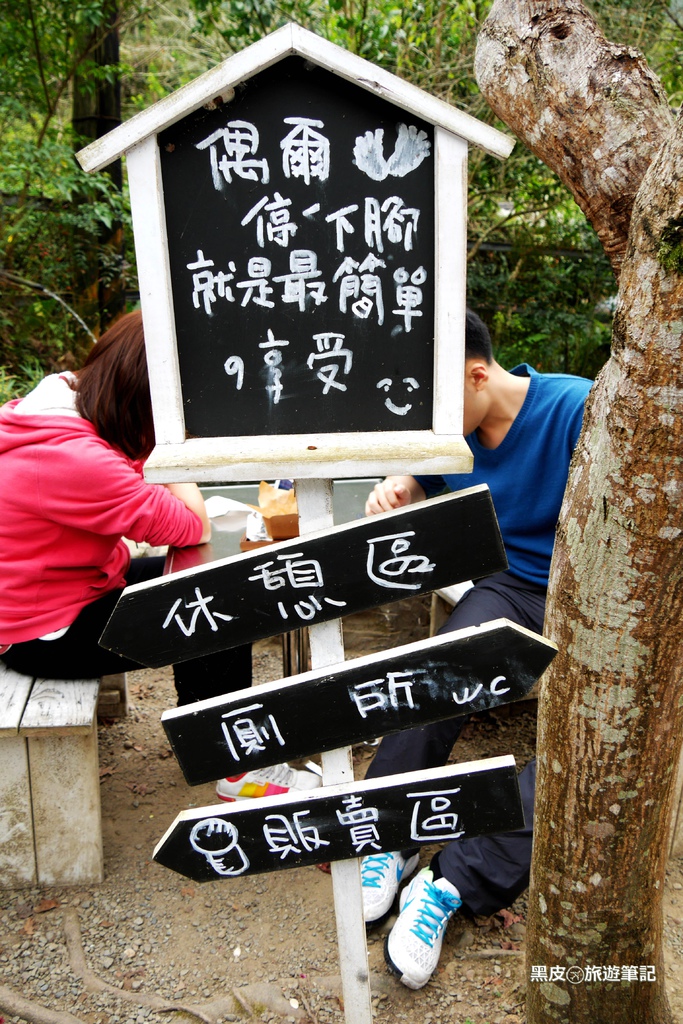 偶爾
停一下腳
就是最簡單
9享受
休憩區
廁所 WC
販賣區
黑皮旅遊筆記